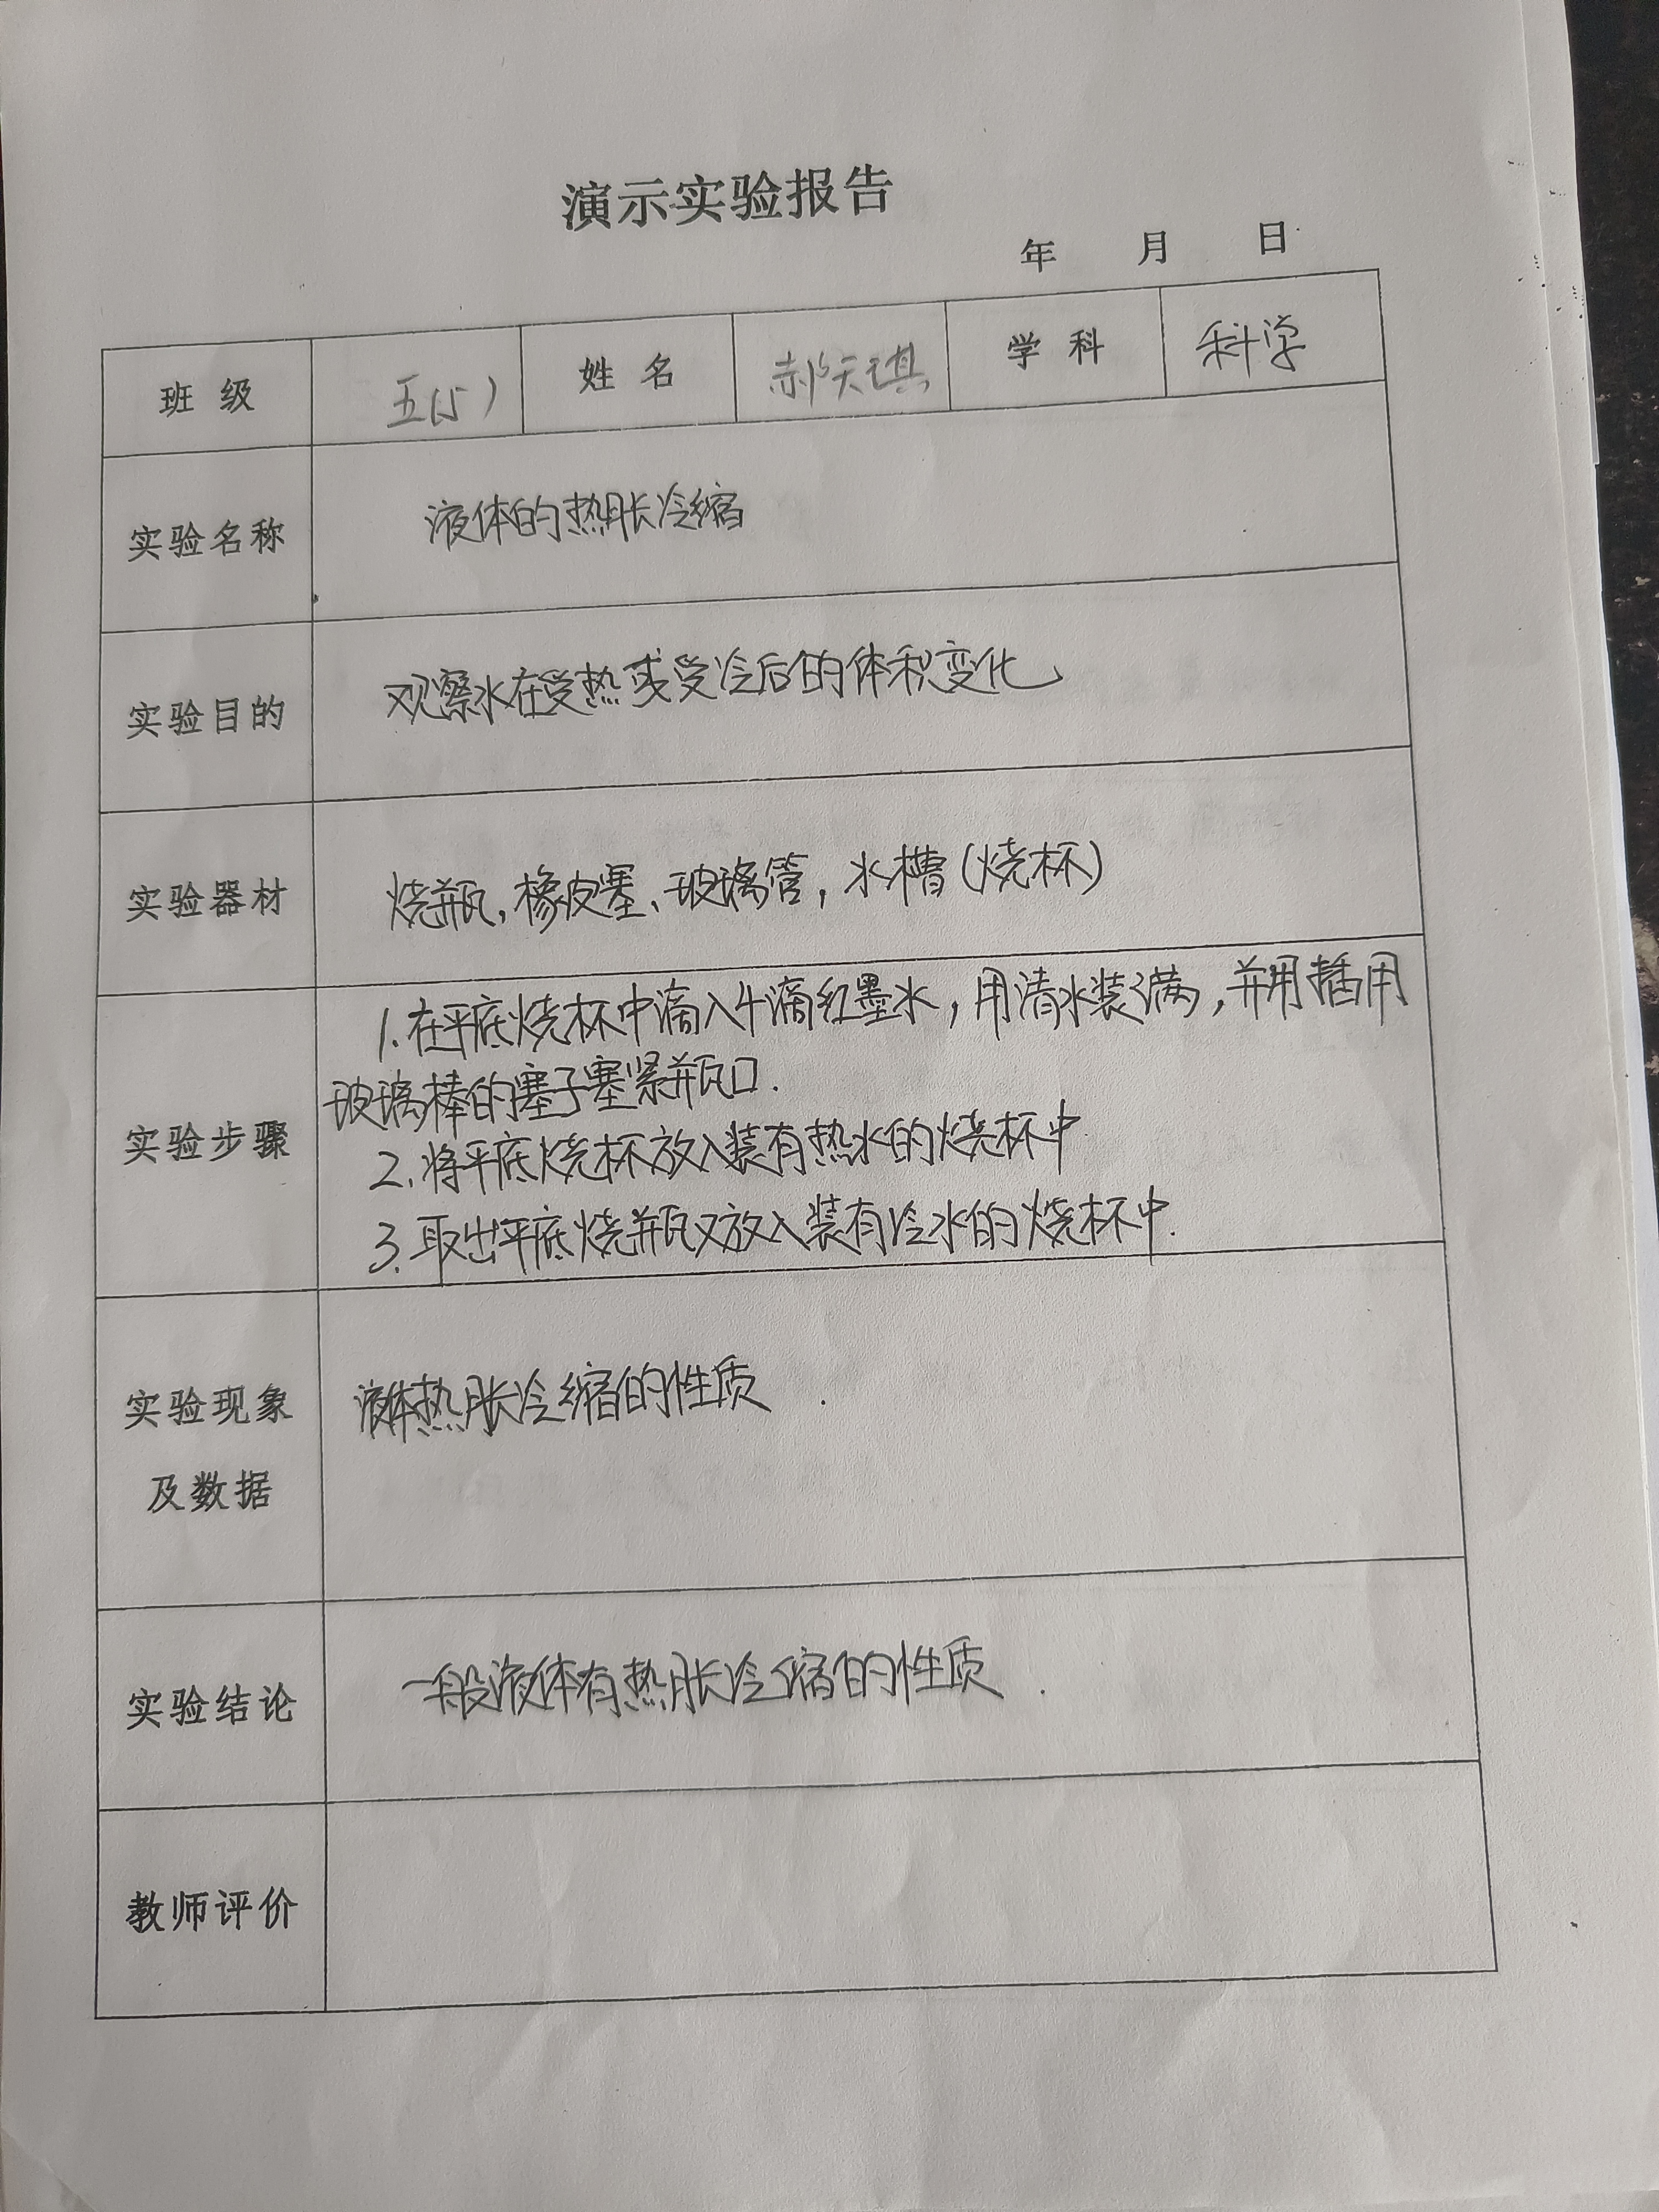 演示实验报告
年 月 日
班级 五(5) 姓名 郝天琪 学科 科学
实验名称 液体的热胀冷缩
实验目的 观察水在受热或受冷后的体积变化
实验器材 烧瓶,橡皮塞、玻璃管,水槽(烧杯)
实验步骤
1.在平底烧杯中滴入4滴红墨水,用清水装满,并用插用
玻璃棒的塞子塞紧瓶口.
2.将平底烧杯放入装有热水的烧杯中
3.取出平底烧瓶又放入装有冷水的烧杯中.
实验现象
及数据
液体热胀冷缩的性质.
实验结论 一般液体有热胀冷缩的性质.
教师评价